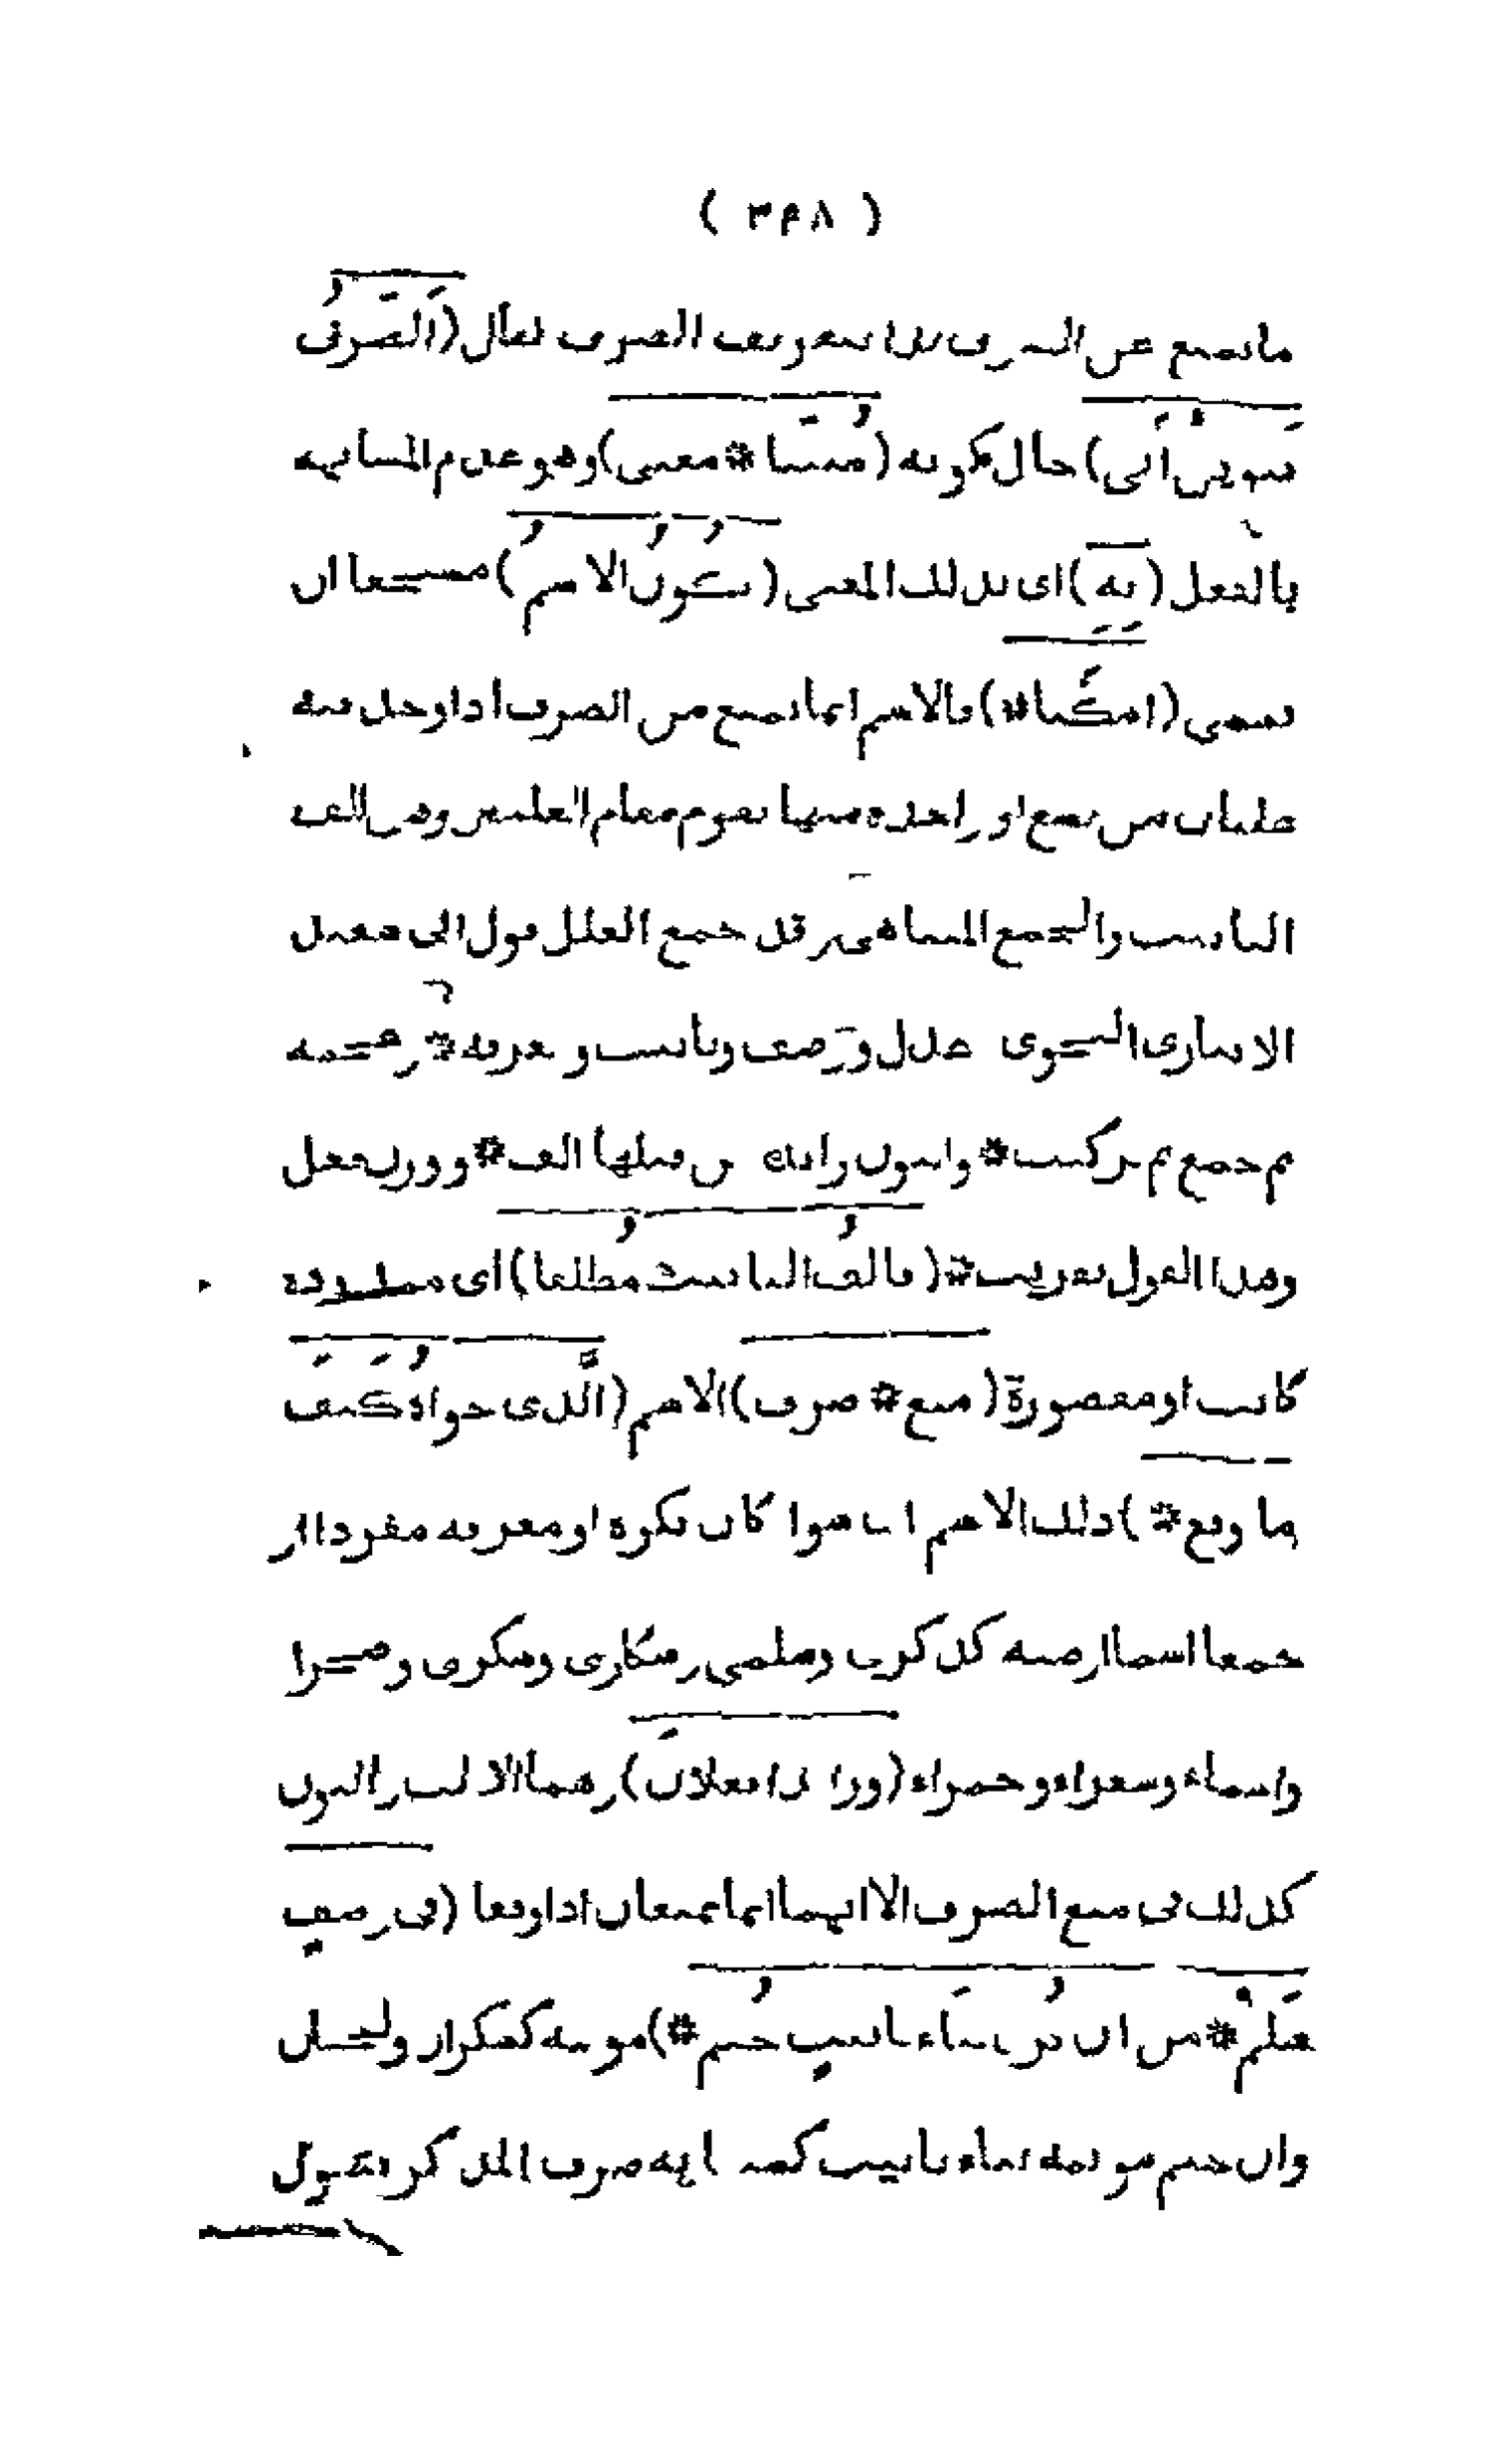 ( ٣٤٨ )
ما يمتنع عن الصرف بدا بتعريف الصرف فقال (الصَّرْفُ
تنوين أتى) حال كونه (مبينا * معنى) وهو عدم المشابهة
بالفعل (به) اى بذلك المعنى (يكون الاسم) مستحقا ان
يسمى (امكنا *) فالاسم انما يمتنع من الصرف اذا وجد فيه
علتان من تسع او واحدة منها تقوم مقام العلتين وهى الف
التانيث والجمع المتناهى وقد جمع العلل قول ابى سعيد
الانبارى النحوى عدل ووصف وتانيث ومعرفة * وعجمة
ثم جمع ثم تركيب * والنون زائدة من قبلها الف * ووزن فعل
وهذا القول تقريب * (فالف التانيث مطلقا) اى ممدودة
كانت او مقصورة (منع * صرف) الاسم (الَّذى حواه كيف
ما وقع *) ذلك الاسم سواء كان نكرة او معرفة مفردا او
جمعا اسما او صفة كذكرى وسلمى وسكارى وسكرى وصحرا
واسماء وشعراء وحمراء (وزائدا فعلان) وهما الالف والنون
كذلك فى منع الصرف الا انهما انما يمنعان اذا وقعا (فى وصف
سلم * من ان يرى بتاء تانيث ختم *) مونثه كسكران ولحيان
وان ختم مونثه بتاء تانيث كسيفانة صرف المذكر فتقول